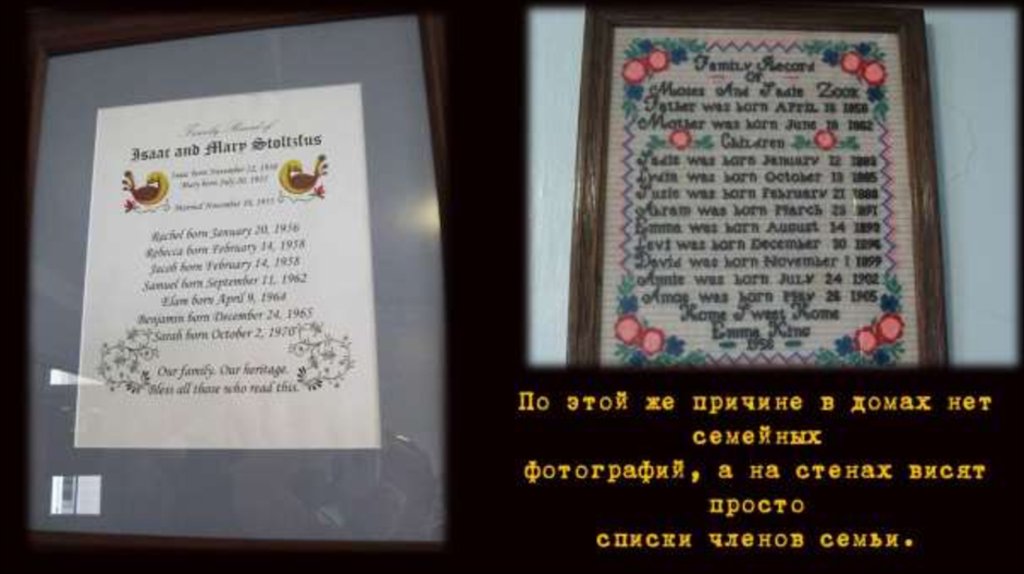 Family Record of
Isaac and Mary Stoltzfus
Isaac born November 12,
Mary born July 20,
Married November
Rachel born January 20, 1956
Rebecca born February 14, 1958
Jacob born February 14, 1958
Samuel born September 11, 1962
Elam born April 9, 1964
Benjamin born December 24, 1965
Sarah born October 2, 1970
Our family. Our heritage.
Bless all those who read this.
Family Record
Of
Moses And Sadie Zook
Father was born April 18 1858
Mother was born June 18 1862
Children
Sadie was born January 12
Lydia was born October 13 1885
Suzie was born February 21 1888
Abram was born March 25 1891
Emma was born August 14 1893
Levi was born December 30 1896
David was born November 1 1899
Annie was born July 24 1902
Amos was born May 26 1905
Home Sweet Home
Emma King
1958
По этой же причине в домах нет
семейных
фотографий, а на стенах висят
просто
списки членов семьи.